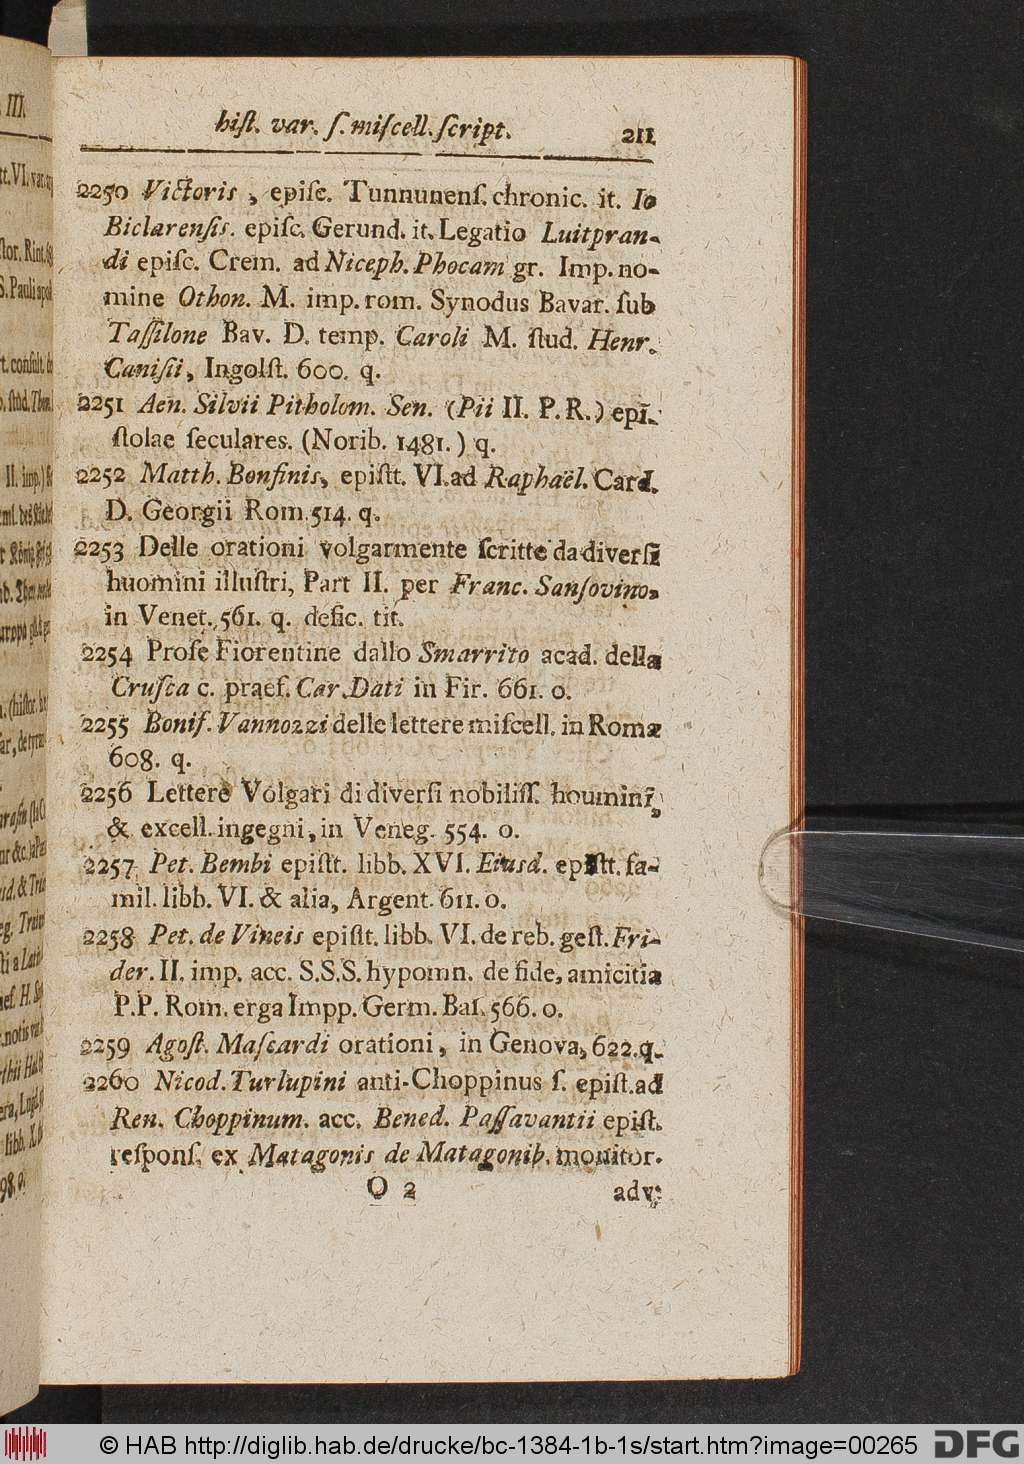 hiſt. var. ſ. miſcell. ſcript. 211
2250 Victoris, epiſc. Tunnunenſ. chronic. it. Io
Biclarenſis. epiſc. Gerund. it. Legatio Luitpran-
di epiſc. Crem. ad Niceph. Phocam gr. Imp. no-
mine Othon. M. imp. rom. Synodus Bavar. ſub
Taſſilone Bav. D. temp. Caroli M. ſtud. Henr.
Caniſii, Ingolſt. 600. q.
2251 Aen. Silvii Pitholom. Sen. (Pii II. P. R.) epi-
ſtolae ſeculares. (Norib. 1481.) q.
2252 Matth. Bonfinis, epiſtt. VI. ad Raphaël. Card.
D. Georgii Rom. 514. q.
2253 Delle orationi volgarmente ſcritte da diverſi
huomini illuſtri, Part II. per Franc. Sanſovino,
in Venet. 561. q. defic. tit.
2254 Proſe Fiorentine dallo Smarrito acad. della
Cruſca c. praef. Car. Dati in Fir. 661. o.
2255 Bonif. Vannozzi delle lettere miſcell. in Roma
608. q.
2256 Lettere Volgari di diverſi nobiliſſ. houmini,
& excell. ingegni, in Veneg. 554. o.
2257 Pet. Bembi epiſtt. libb. XVI. Eiusd. epiſtt. fa-
mil. libb. VI. & alia, Argent. 611. o.
2258 Pet. de Vineis epiſtt. libb. VI. de reb. geſt. Fri-
der. II. imp. acc. S.S.S. hypomn. de fide, amicitia
P.P. Rom. erga Impp. Germ. Baſ. 566. o.
2259 Agoſt. Maſcardi orationi, in Genova, 622. q.
2260 Nicod. Turlupini anti-Choppinus ſ. epiſt. ad
Ren. Choppinum. acc. Bened. Paſſavantii epiſt.
reſponſ. ex Matagonis de Matagonib. monitor.
O 2 adv.
© HAB http://diglib.hab.de/drucke/bc-1384-1b-1s/start.htm?image=00265 DFG